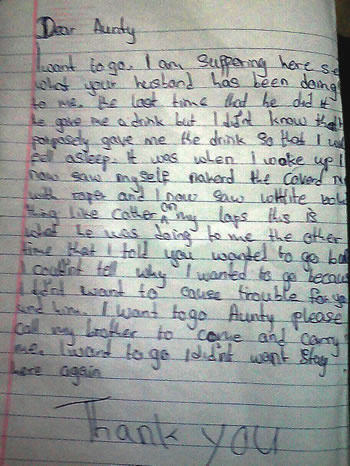 Dear Aunty
I want to go. I am suffering here
what your husband has been doing
to me. the last time that he did it
he gave me a drink but I didn't know
porposely gave me the drink so that I
fell asleep. it was when I wake up I
now saw myself nakerd the coverd
with raper and I now saw white
thing like cather on my laps this is
what he was doing to me the other
time that I told you wanted to go
I couldn't tell why I wanted to go
I didn't want to cause trouble for
and him. I want to go Aunty please
call my brother to come and carry
me. I want to go I didn't want stay
here again
Thank you